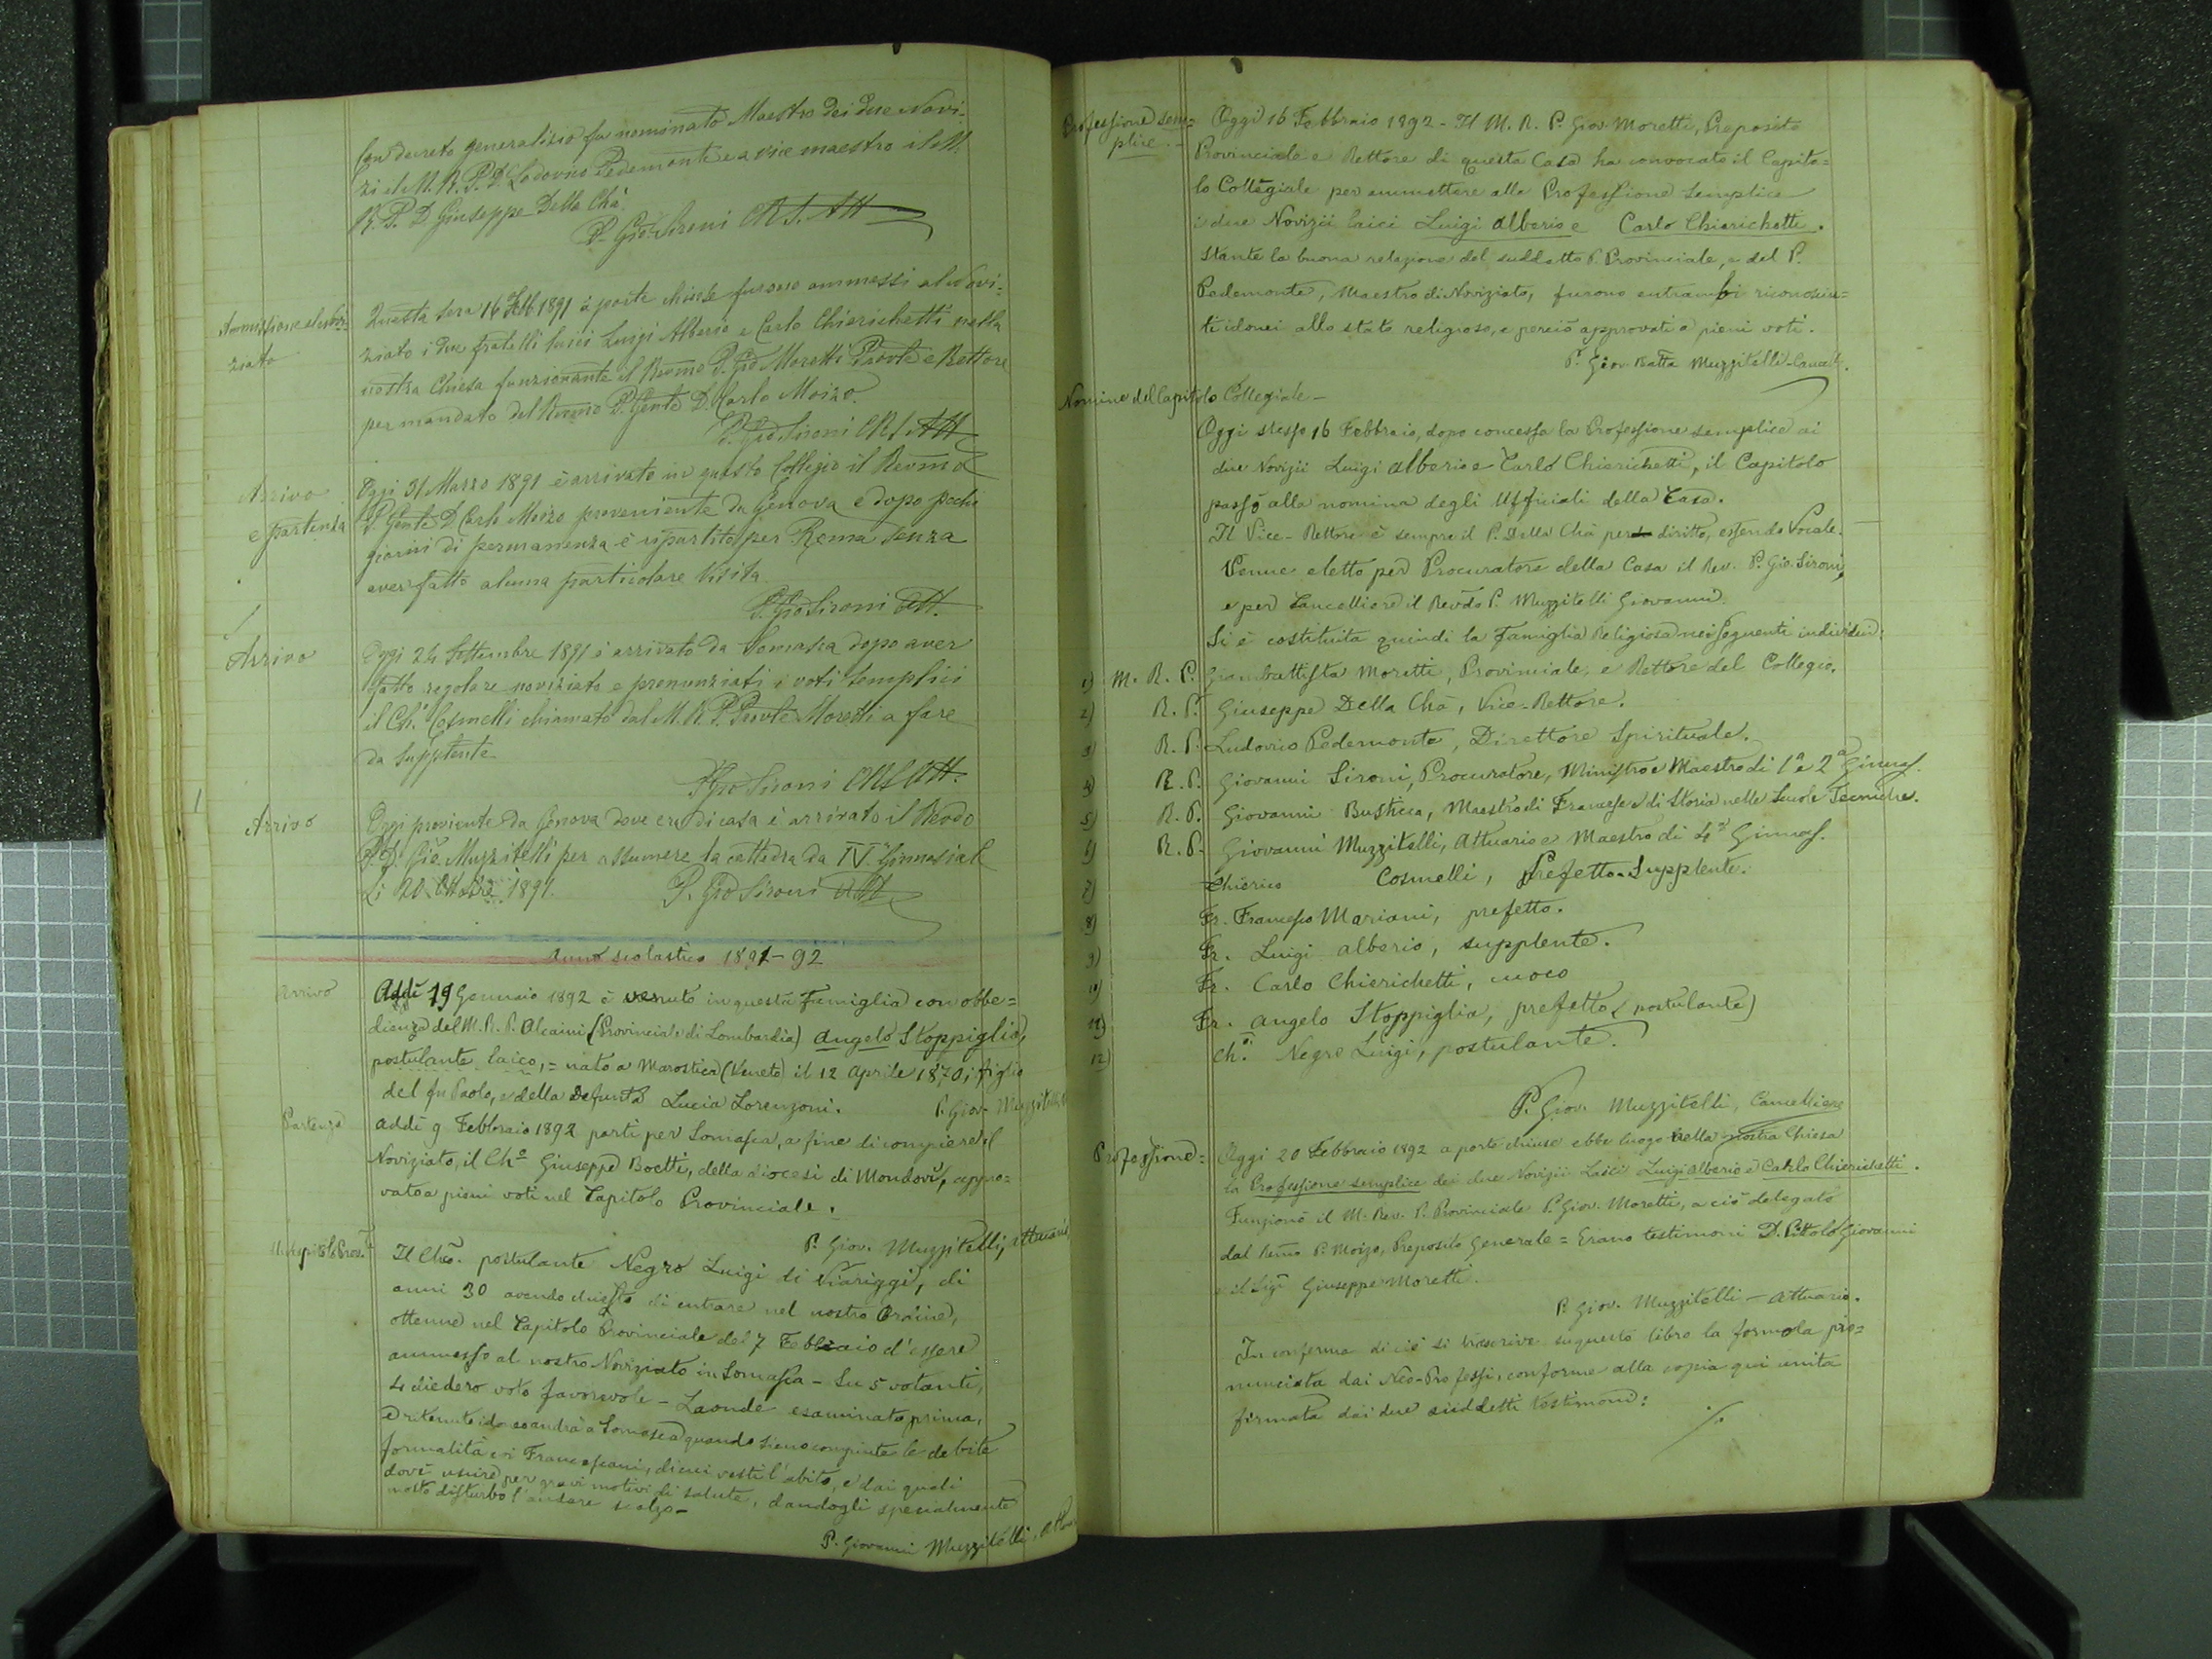 Con decreto generalizio fu nominato Maestro dei due Novi-
zi il M. R. P. D. Lodovico Pedemonte e a vice maestro il M.
R. P. D Giuseppe Della Chà.
P. Gio Sironi CRS. Att
Ammissione al novi-
ziato
Questa sera 16 Febb 1891 a porte chiuse furono ammessi al Novi-
ziato i due fratelli laici Luigi Alberio e Carlo Chierichetti nella
nostra Chiesa funzionante il Revmo P. Gio Moretti Provle e Rettore
per mandato del Revmo P. Genle D. Carlo Moizo.
P. Gio Sironi CRS Att
Arrivo
e partenza
Oggi 31 Marzo 1891 è arrivato in questo Collegio il Revmo
P. Genle D Carlo Moizo proveniente da Genova e dopo pochi
giorni di permanenza è ripartito per Roma senza
aver fatto alcuna particolare Visita
P. Gio Sironi Att.
Arrivo
Oggi 24 Settembre 1891 è arrivato da Somasca dopo aver
fatto regolare noviziato e pronunziati i voti semplici
il Ch. Cosmelli chiamato dal M. R. P. Provle Moretti a fare
da supplente
P Gio Sironi CRS Att.
Arrivo
Oggi proviente da Genova dove era di casa è arrivato il Revdo
P. D. Gio. Muzzitelli per assumere la cattedra da IV Ginnasiale
Li 20 Ottobre 1891. P. Gio Sironi Att
Anno scolastico 1891-92
Arrivo
Addì 19 Gennaio 1892 è venuto in questa Famiglia con obbe=
dienza del M. R. P. Alcaini (Provinciale di Lombardia) Angelo Stoppiglia,
postulante laico, = nato a Marostica (Veneto) il 12 Aprile 1870, figlio
del fu Paolo, e della defunta Lucia Lorenzoni. P. Giov. Muzzitelli
Partenza
Addì 9 Febbraio 1892 partì per Somasca, a fine di compiere il
Noviziato, il Cho Giuseppe Boetti, della diocesi di Mondovì, appro=
vato a pieni voti nel Capitolo Provinciale.
P. Giov. Muzzitelli, attuario
Capitolo Prov.
Il Cho. postulante Negro Luigi di Viariggi, di
anni 30 avendo chiesto di entrare nel nostro Ordine,
ottenne nel Capitolo Provinciale del 7 Febbraio d'essere
ammesso al nostro Noviziato in Somasca - Su 5 votanti,
4 diedero voto favorevole - Laonde esaminato prima,
e ritenuto idoneo andrà a Somasca quando sieno compiute le debite
formalità coi Francescani, di cui vestì l'abito, e dai quali
dovè uscire per gravi motivi di salute, dandogli specialmente
molto disturbo l'andare scalzo -
P. Giovanni Muzzitelli, Att
Professione sem=
plice. -
Oggi 16 Febbraio 1892 - Il M. R. P. Giov. Moretti, Preposito
Provinciale e Rettore di questa Casa ha convocato il Capito=
lo Collegiale per ammettere alla Professione semplice
i due Novizii laici Luigi Alberio e Carlo Chierichetti.
Stante la buona relazione del suddetto P. Provinciale, e del P.
Pedemonte, Maestro di Noviziato, furono entrambi riconosciu=
ti idonei allo stato religioso, e perciò approvati a pieni voti.
P. Giov. Batta Muzzitelli Cance.
Nomine del Capitolo Collegiale -
Oggi stesso 16 Febbraio, dopo concessa la Professione semplice ai
due Novizii Luigi Alberio e Carlo Chierichetti, il Capitolo
passò alla nomina degli Ufficiali della Casa.
Il Vice-Rettore è sempre il P. Della Chà per diritto, essendo Vocale.
Venne eletto per Procuratore della Casa il Rev. P. Gio. Sironi,
e per Cancelliere il Revdo P. Muzzitelli Giovanni.
Si è costituita quindi la Famiglia Religiosa nei seguenti individui:
1) M. R. P. Giambattista Moretti, Provinciale, e Rettore del Collegio.
2) R. P. Giuseppe Della Chà, Vice-Rettore.
3) R. P. Ludovico Pedemonte, Direttore Spirituale.
4) R. P. Giovanni Sironi, Procuratore, Ministro e Maestro di 1a e 2a Ginnas.
5) R. P. Giovanni Bustica, Maestro di Francese e di Storia nelle Scuole Tecniche.
6) R. P. Giovanni Muzzitelli, Attuario e Maestro di 4a Ginnas.
7) Chierico Cosmelli, Prefetto-Supplente.
8) Fr. Francesco Mariani, prefetto.
9) Fr. Luigi Alberio, supplente.
10) Fr. Carlo Chierichetti, cuoco
11) Fr. Angelo Stoppiglia, prefetto (postulante)
12) Ch. Negro Luigi, postulante.
P. Giov. Muzzitelli, Cancelliere
Professione =
Oggi 20 Febbraio 1892 a porte chiuse ebbe luogo nella nostra Chiesa
la Professione semplice dei due Novizii Laici Luigi Alberio e Carlo Chierichetti.
Funzionò il M. Rev. P. Provinciale P. Giov. Moretti, a ciò delegato
dal Revmo P. Moizo, Preposito Generale = Erano testimoni D. Pittolo Giovanni
e il Sigr Giuseppe Moretti.
P. Giov. Muzzitelli - Attuario.
In conferma di ciò si trascrive su questo libro la formola pro=
nunciata dai Neo-Professi, conforme alla copia qui unita
firmata dai due suddetti testimoni: ./.